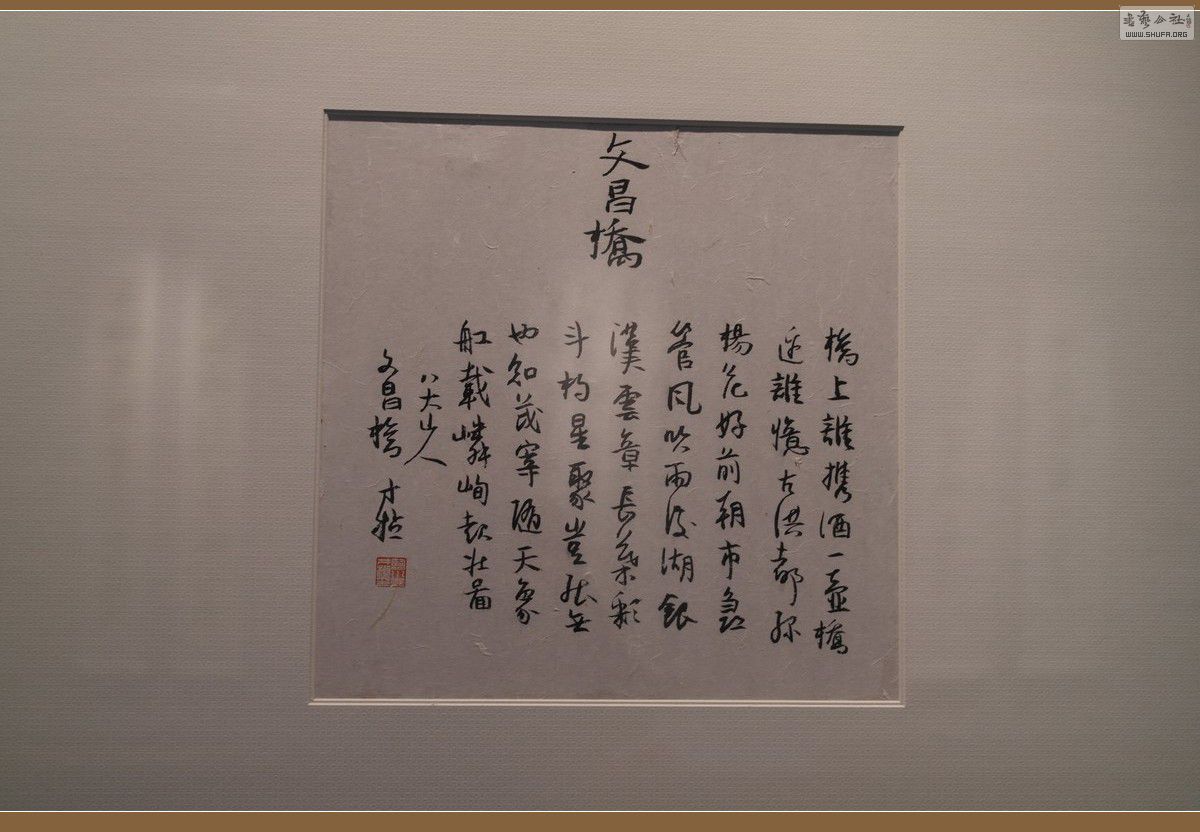 文昌橋
橋上誰携酒一壺橋
邊誰憶古洪都
楊花好前朝市
管風吹雨後湖銀
漢雲章長華彩
斗杓星聚豈能無
也知茂宰隨天象
舡載嶙峋
八大山人
文昌橋
書藝公社
WWW.SHUFA.ORG